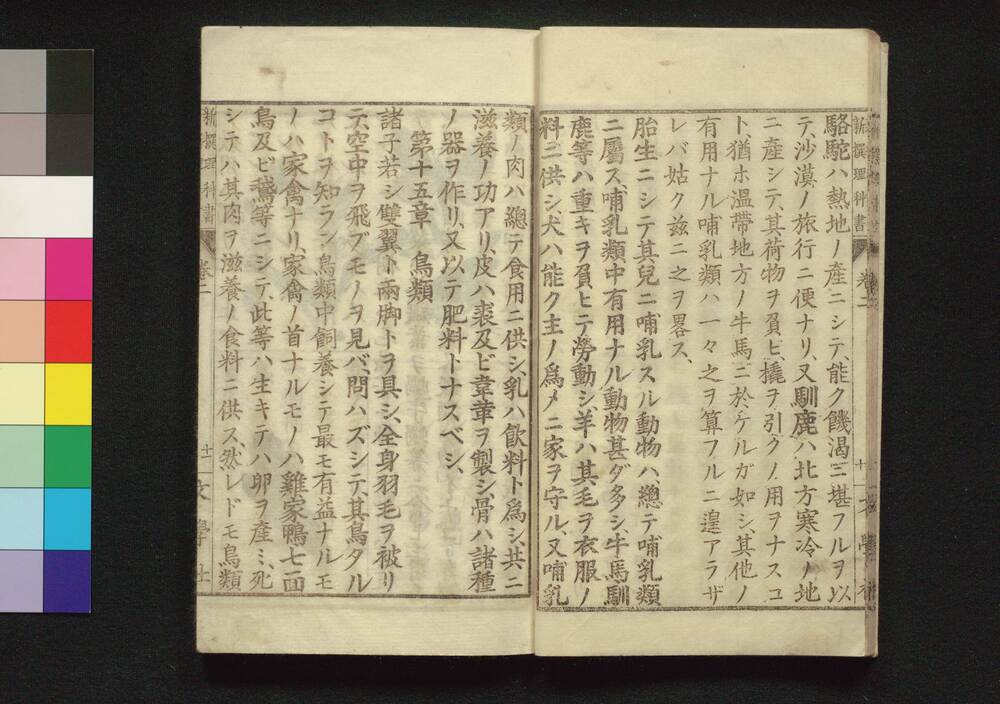 新撰理科書 卷二
駱駝ハ熱地ノ產ニシテ、能ク饑渴ニ堪フルヲ以
テ、沙漠ノ旅行ニ便ナリ、又馴鹿ハ北方寒冷ノ地
ニ產シテ、其荷物ヲ負ヒ、橇ヲ引クノ用ヲナスコ
ト、猶ホ溫帶地方ノ牛馬ニ於ケルガ如シ、其他ノ
有用ナル哺乳類ハ一々之ヲ算フルニ遑アラザ
レバ姑ク玆ニ之ヲ畧ス、
胎生ニシテ其兒ニ哺乳スル動物ハ、總テ哺乳類
ニ屬ス、哺乳類中有用ナル動物甚ダ多シ、牛馬馴
鹿等ハ重キヲ負ヒテ勞動シ、羊ハ其毛ヲ衣服ノ
料ニ供シ、犬ハ能ク主ノ爲メニ家ヲ守ル、又哺乳
類ノ肉ハ總テ食用ニ供シ、乳ハ飮料ト爲シ、共ニ
滋養ノ功アリ、皮ハ裘及ビ韋革ヲ製シ、骨ハ諸種
ノ器ヲ作リ、又以テ肥料トナスベシ、
第十五章 鳥類
諸子若シ雙翼ト兩脚トヲ具シ、全身羽毛ヲ被リ
テ、空中ヲ飛ブモノヲ見バ、問ハズシテ、其鳥タル
コトヲ知ラン、鳥類中飼養シテ最モ有益ナルモ
ノハ家禽ナリ、家禽ノ首ナルモノハ雞家鴨七面
鳥及ビ鵞等ニシテ、此等ハ生キテハ卵ヲ產ミ、死
シテハ其肉ヲ滋養ノ食料ニ供ス、然レドモ鳥類
新撰理科書 卷二 十一 文學社